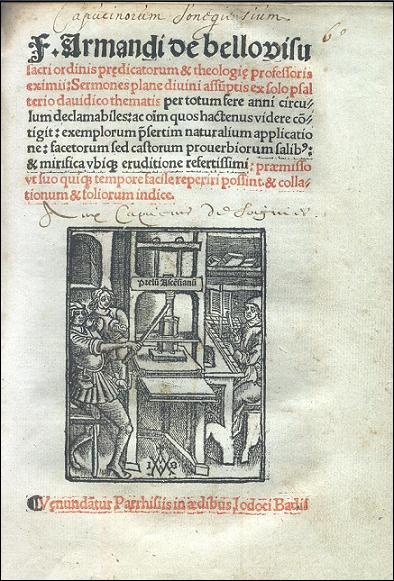 Capucinorum Sonegiensium
F. Armandi de bellovisu
sacri ordinis prędicatorum & theologię professoris
eximii: Sermones plane diuini assūptis ex solo psal
terio dauidico thematis per totum fere anni circu/
lum declamabiles: ac oīm quos hactenus videre cō/
tigit: exemplorum p̄sertim naturalium applicatio
ne: facetorum sed castorum prouerbiorum salibꝰ:
& mirifica vbiqꝫ eruditione refertissimi: præmisso
vt suo quiqꝫ tempore facile reperiri possint, & colla/
tionum & foliorum indice.
Aux Capucins de Soignies.
Prelū Ascēsianū
Venundātur Parrhisiis in ædibus Iodoci Badii